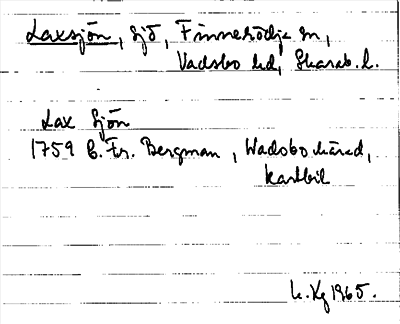 Laxsjön, sjö, Finnerödja sn,
Vadsbo hd, Skarab. l.
Lax Sjön
1759 C. Fr. Bergman, Wadsbo härad,
kartbil
L. Kg 1965.